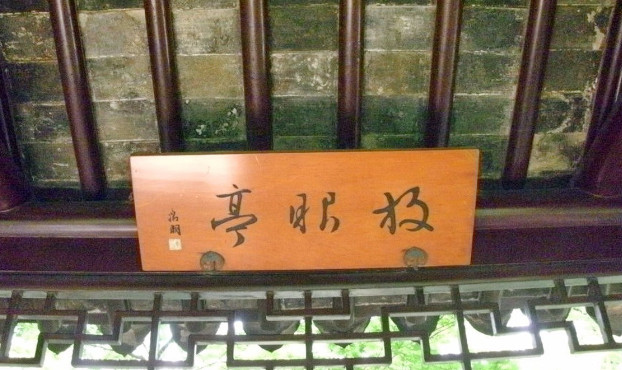 放眼亭